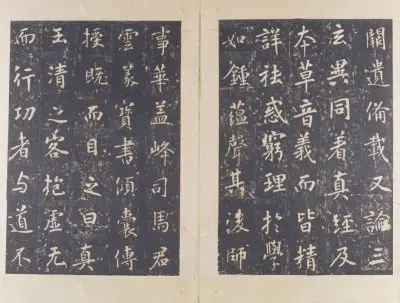 闕遺俻載又論三
玄異同着真經及
本草音義而皆精
詳祛惑窮理扵學
如鍾蘊聲其後師
事華盖峰司馬君
雲篆寳書傾囊傳
授既而目之曰真
王清之客抱虛无
而行功者与道不